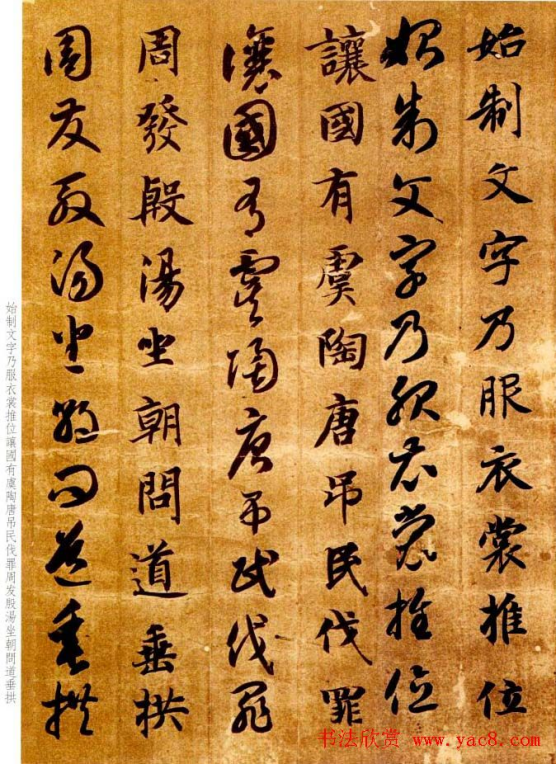 始制文字乃服衣裳推位
始制文字乃服衣裳推位
讓國有虞陶唐吊民伐罪
讓國有虞陶唐吊民伐罪
周發殷湯坐朝問道垂拱
周發殷湯坐朝問道垂拱
始制文字乃服衣裳推位讓國有虞陶唐吊民伐罪周发殷湯坐朝問道垂拱
书法欣赏 www.yac8.com